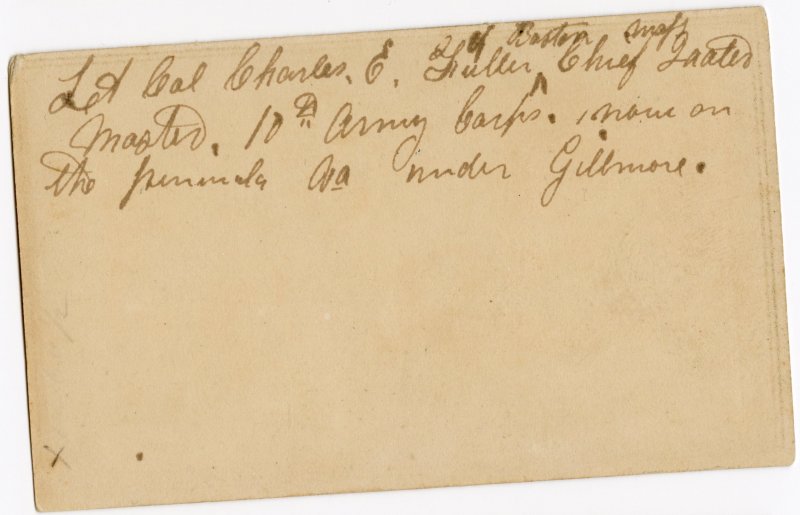 of Boston Mass
Lt Col Charles. E. Fuller, Chief Quater
Master. 10th Army Corps. , now on
the peninula Va under Gillmore.